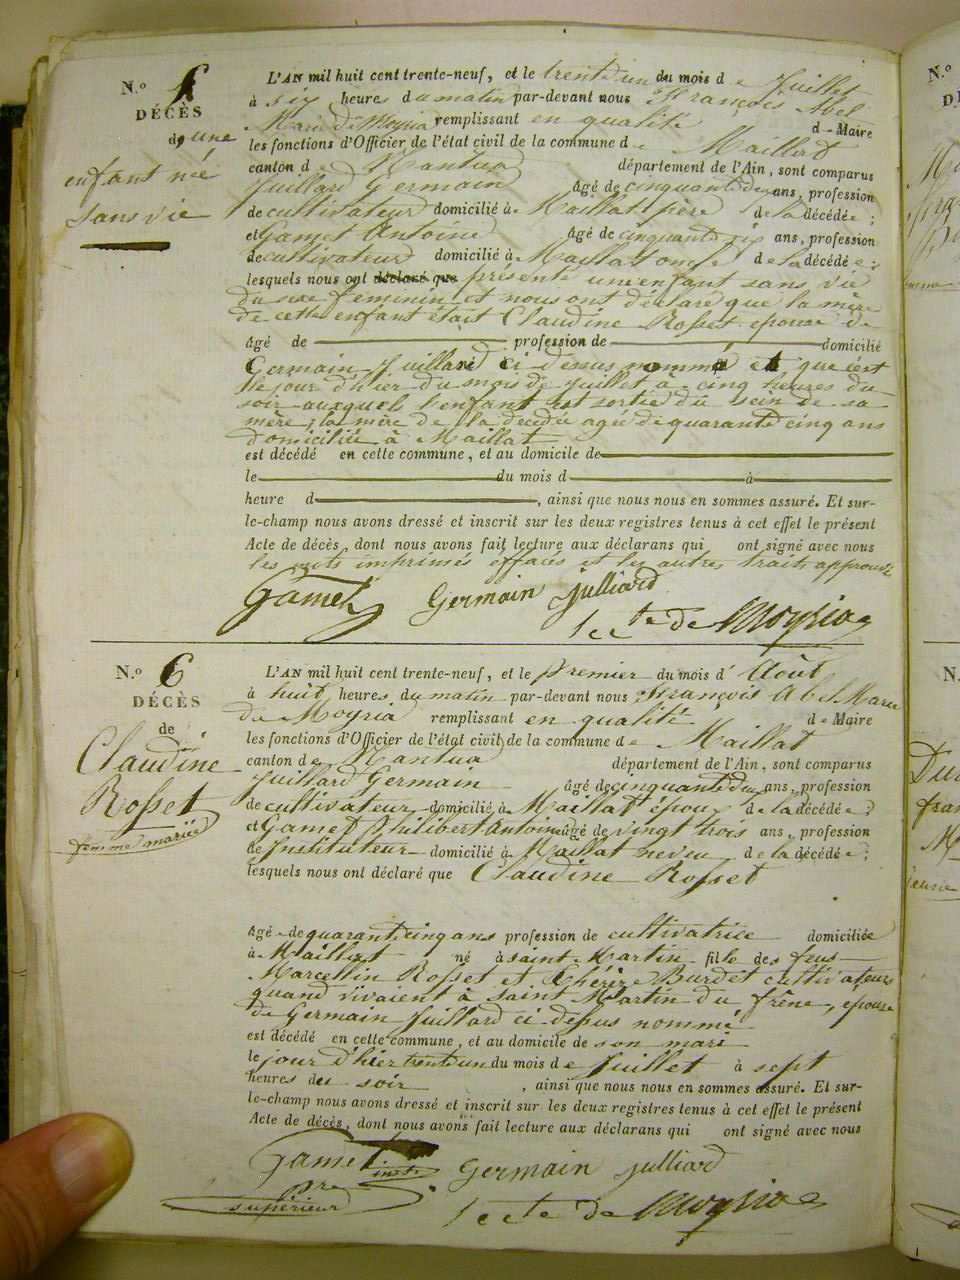 N.º 5
DÉCÈS
d'une
enfant née
sans vie
L'AN mil huit cent trente-neuf, et le trente un du mois de Juillet
à six heures du matin par-devant nous François Abel
Marie de Moyria remplissant en qualité de Maire
les fonctions d'Officier de l'état civil de la commune de Maillat
canton de Nantua département de l'Ain, sont comparus
Juillard Germain âgé de cinquante deux ans, profession
de cultivateur domicilié à Maillat père de la décédée;
et Gamet Antoine âgé de cinquante six ans, profession
de cultivateur domicilié à Maillat oncle de la décédée;
lesquels nous ont déclaré que présenté un enfant sans vie
du sexe feminin et nous ont déclaré que la mère
de cette enfant était Claudine Rosset epouse de
âgé de profession de domicilié
Germain Juillard ci dessus nommé et que c'est
le jour d'hier du mois de Juillet a cinq heures du
soir auxquels l'enfant est sortie du sein de sa
mère, la mère de la décédée agée de quarante cinq ans
domiciliée à Maillat
est décédé en cette commune, et au domicile de
le du mois d à
heure d , ainsi que nous nous en sommes assuré. Et sur-
le-champ nous avons dressé et inscrit sur les deux registres tenus à cet effet le présent
Acte de décès, dont nous avons fait lecture aux déclarans qui ont signé avec nous
les mots imprimés effacés et les autres traits approuvés
Gamet Germain Julliard
le cte de Moyria
N.º 6
DÉCÈS
de
Claudine
Rosset
femme mariée
L'AN mil huit cent trente-neuf, et le premier du mois d'Août
à huit heures du matin par-devant nous François Abel Marie
de Moyria remplissant en qualité de Maire
les fonctions d'Officier de l'état civil de la commune de Maillat
canton de Nantua département de l'Ain, sont comparus
Juillard Germain âgé de cinquante deux ans, profession
de cultivateur domicilié à Maillat époux de la décédée;
et Gamet Philibert Antoine âgé de vingt trois ans, profession
de Instituteur domicilié à Maillat neveu de la décédée;
lesquels nous ont déclaré que Claudine Rosset
âgée de quarante cinq ans profession de cultivatrice domiciliée
à Maillat né à saint Martin fille des feus
Marcellin Rosset et Thérèze Burdet cultivateurs
quand vivaient à saint Martin du frêne, épouse
de Germain Juillard ci-desus nommé
est décédé en cette commune, et au domicile de son mari
le jour d'hier trente un du mois de Juillet à sept
heures du soir , ainsi que nous nous en sommes assuré. Et sur-
le-champ nous avons dressé et inscrit sur les deux registres tenus à cet effet le présent
Acte de décès, dont nous avons fait lecture aux déclarans qui ont signé avec nous
Gamet inst. Germain Julliard
pre
supérieur
le cte de Moyria